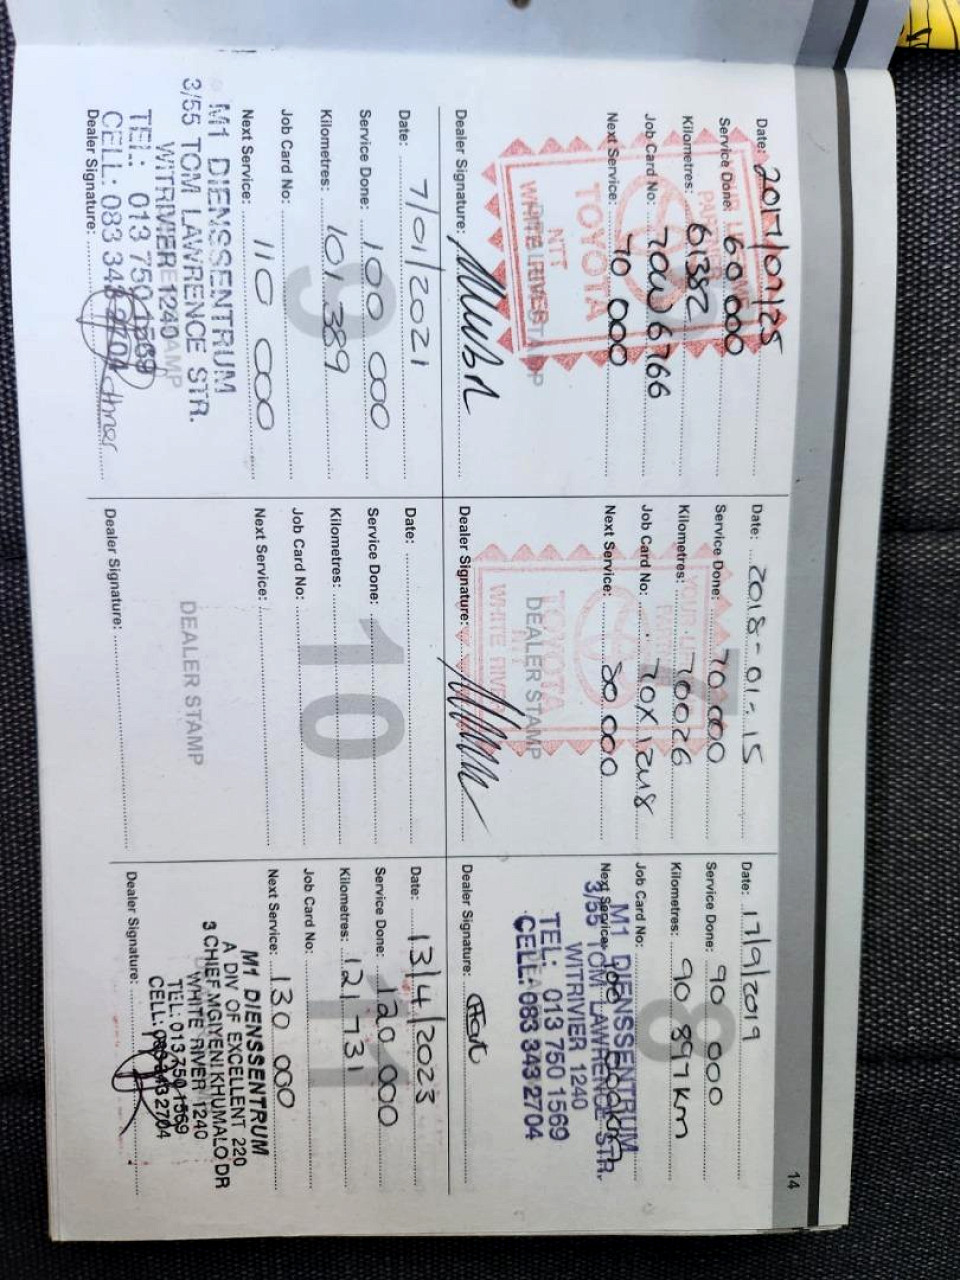 14
Date: 2017/07/25
Service Done: 60 000
Kilometres: 61382
Job Card No:
Next Service: 70 000
TOYOTA
NTT
WHITE RIVER
Dealer Signature:
Date: 2018-01-15
Service Done: 70 000
Kilometres: 70026
Job Card No:
Next Service: 80 000
TOYOTA
DEALER STAMP
NTT
WHITE RIVER
Dealer Signature:
8
Date: 17/9/2019
Service Done: 90 000
Kilometres: 90 897 km
Job Card No:
Next Service:
M1 DIENSSENTRUM
3/55 TOM LAWRENCE STR.
WITRIVIER 1240
TEL: 013 750 1569
CELL: 083 343 2704
Dealer Signature:
9
Date: 7/01/2021
Service Done: 100 000
Kilometres: 101 389
Job Card No:
Next Service: 110 000
M1 DIENSSENTRUM
3/55 TOM LAWRENCE STR.
WITRIVIER 1240
TEL: 013 750 1569
CELL: 083 343 2704
Dealer Signature:
10
Date:
Service Done:
Kilometres:
Job Card No:
Next Service:
DEALER STAMP
Dealer Signature:
11
Date: 13/4/2023
Service Done: 120 000
Kilometres: 121 731
Job Card No:
Next Service: 130 000
M1 DIENSSENTRUM
A DIV OF EXCELLENT 220
3 CHIEF MGIYENI KHUMALO DR
WHITE RIVER 1240
TEL: 013 750 1569
CELL: 083 343 2704
Dealer Signature: